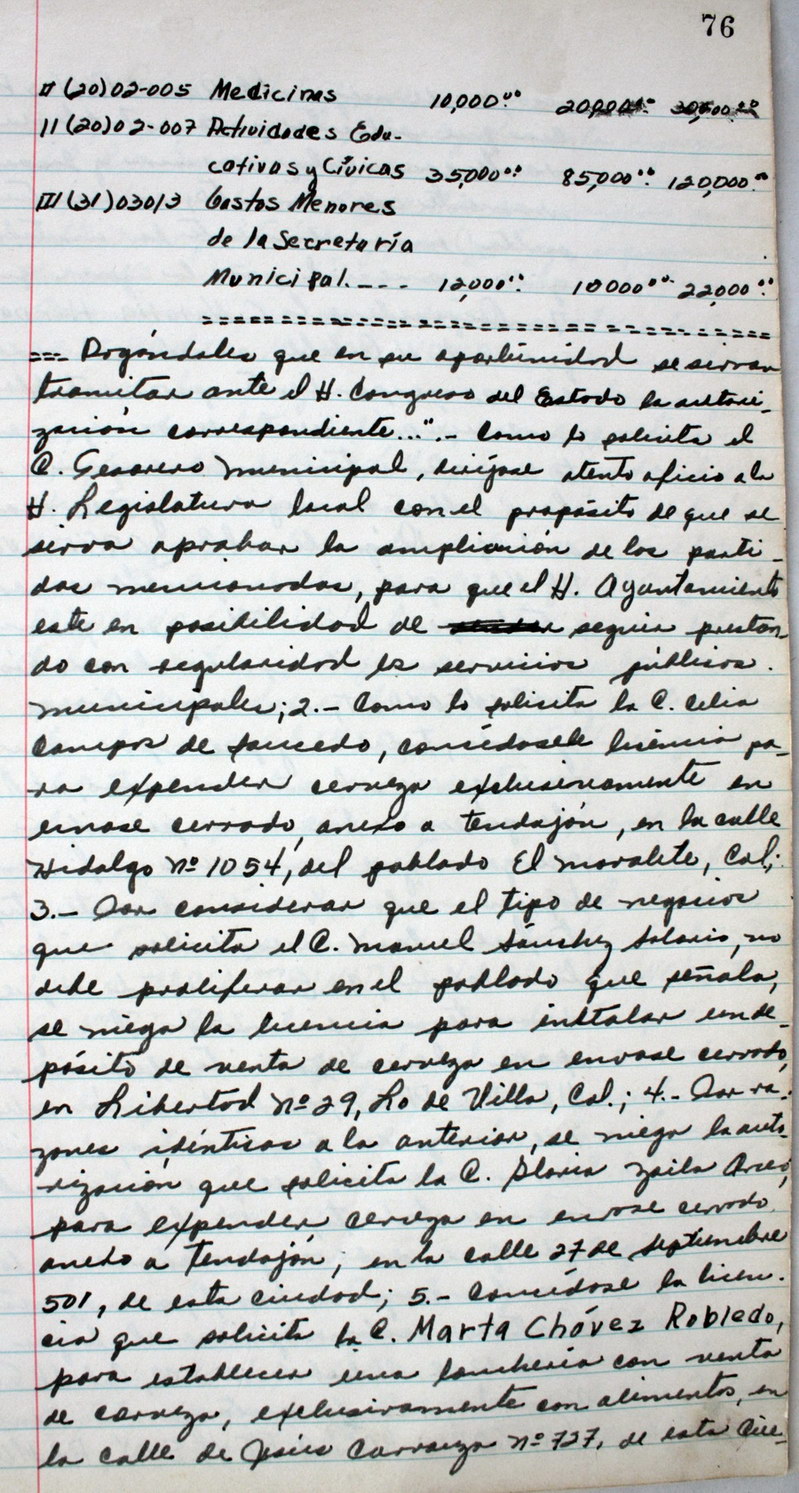 76
II (20)02-005 Medicinas 10,000.00 20,000.00 30,000.00
II (20)02-007 Actividades Edu-
cativas y Cívicas 35,000.00 85,000.00 120,000.00
III (31)03013 Gastos Menores
de la Secretaría
Municipal.--- 12,000.00 10000.00 22,000.00
=== Rogándoles que en su oportunidad se sirvan
tramitar ante el H. Congreso del Estado la autori-
zación correspondiente...".- Como lo solicita el
C. Tesorero Municipal, diríjase atento oficio a la
H. Legislatura local con el propósito de que se
sirva aprobar la ampliación de las parti-
das mencionadas, para que el H. Ayuntamiento
este en posibilidad de seguir prestan-
do con regularidad los servicios públicos
municipales; 2.- Como lo solicita la C. Celia
Campos de Saucedo, concédasele licencia pa-
ra expender cerveza exclusivamente en
envase cerrado, anexo a tendajón, en la calle
Hidalgo Nº 1054, del poblado El Moralete, Col.;
3.- Por considerar que el tipo de negocios
que solicita el C. Manuel Sánchez Solorio, no
debe proliferar en el poblado que señala,
se niega la licencia para instalar un de-
pósito de venta de cerveza en envase cerrado,
en Libertad Nº 29, Lo de Villa, Col.; 4.- Por ra-
zones idénticas a la anterior, se niega la auto-
rización que solicita la C. Gloria Zaila Arceo,
para expender cerveza en envase cerrado
anexo a tendajón, en la calle 27 de septiembre
501, de esta ciudad; 5.- Concédase la licen-
cia que solicita la C. Marta Chávez Robledo,
para establecer una lonchería con venta
de cerveza, exclusivamente con alimentos, en
la calle de Jesús Carranza Nº 727, de esta Ciu-